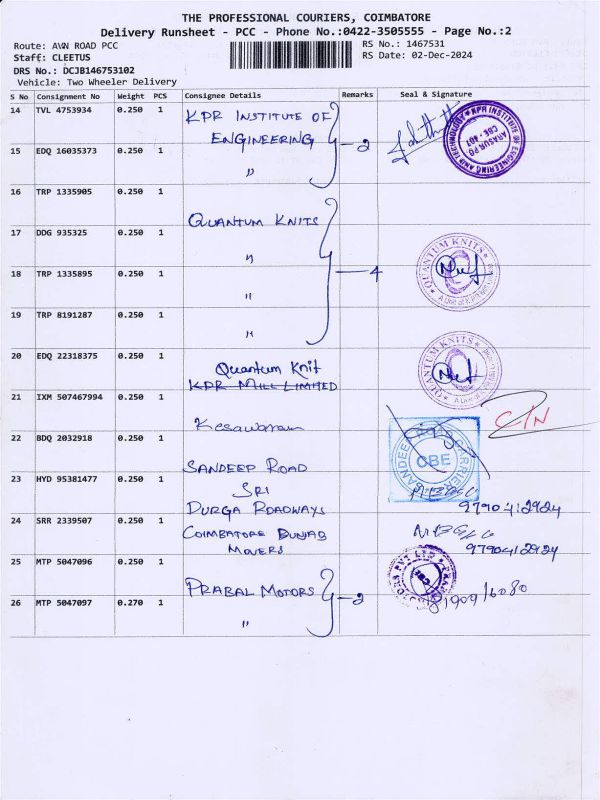 THE PROFESSIONAL COURIERS, COIMBATORE
Delivery Runsheet - PCC - Phone No.:0422-3505555 - Page No.:2
Route: AVN ROAD PCC
RS No.: 1467531
Staff: CLEETUS
RS Date: 02-Dec-2024
DRS No.: DCJB146753102
Vehicle: Two Wheeler Delivery
S No Consignment No Weight PCS Consignee Details Remarks Seal & Signature
14 TVL 4753934 0.250 1 KPR INSTITUTE OF
ENGINEERING
2
KPR INSTITUTE OF ENGINEERING AND TECHNOLOGY
ARASUR PO
CBE - 407
15 EDQ 16035373 0.250 1 "
16 TRP 1335905 0.250 1 QUANTUM KNITS
17 DDG 935325 0.250 1 "
QUANTUM KNITS
4
18 TRP 1335895 0.250 1 "
19 TRP 8191287 0.250 1 "
20 EDQ 22318375 0.250 1 Quantum Knit
KPR MILL LIMITED
QUANTUM KNITS
21 IXM 507467994 0.250 1 Kesavaram
C/N
22 BDQ 2032918 0.250 1 SANDEEP ROAD
SANDEEP ROAD CARRIER
CBE
23 HYD 95381477 0.250 1 SRI
DURGA ROADWAYS
9790412924
24 SRR 2339507 0.250 1 COIMBATORE PUNJAB
MOVERS
9790412924
25 MTP 5047096 0.250 1 PRABAL MOTORS
2
CBE
26 MTP 5047097 0.270 1 "